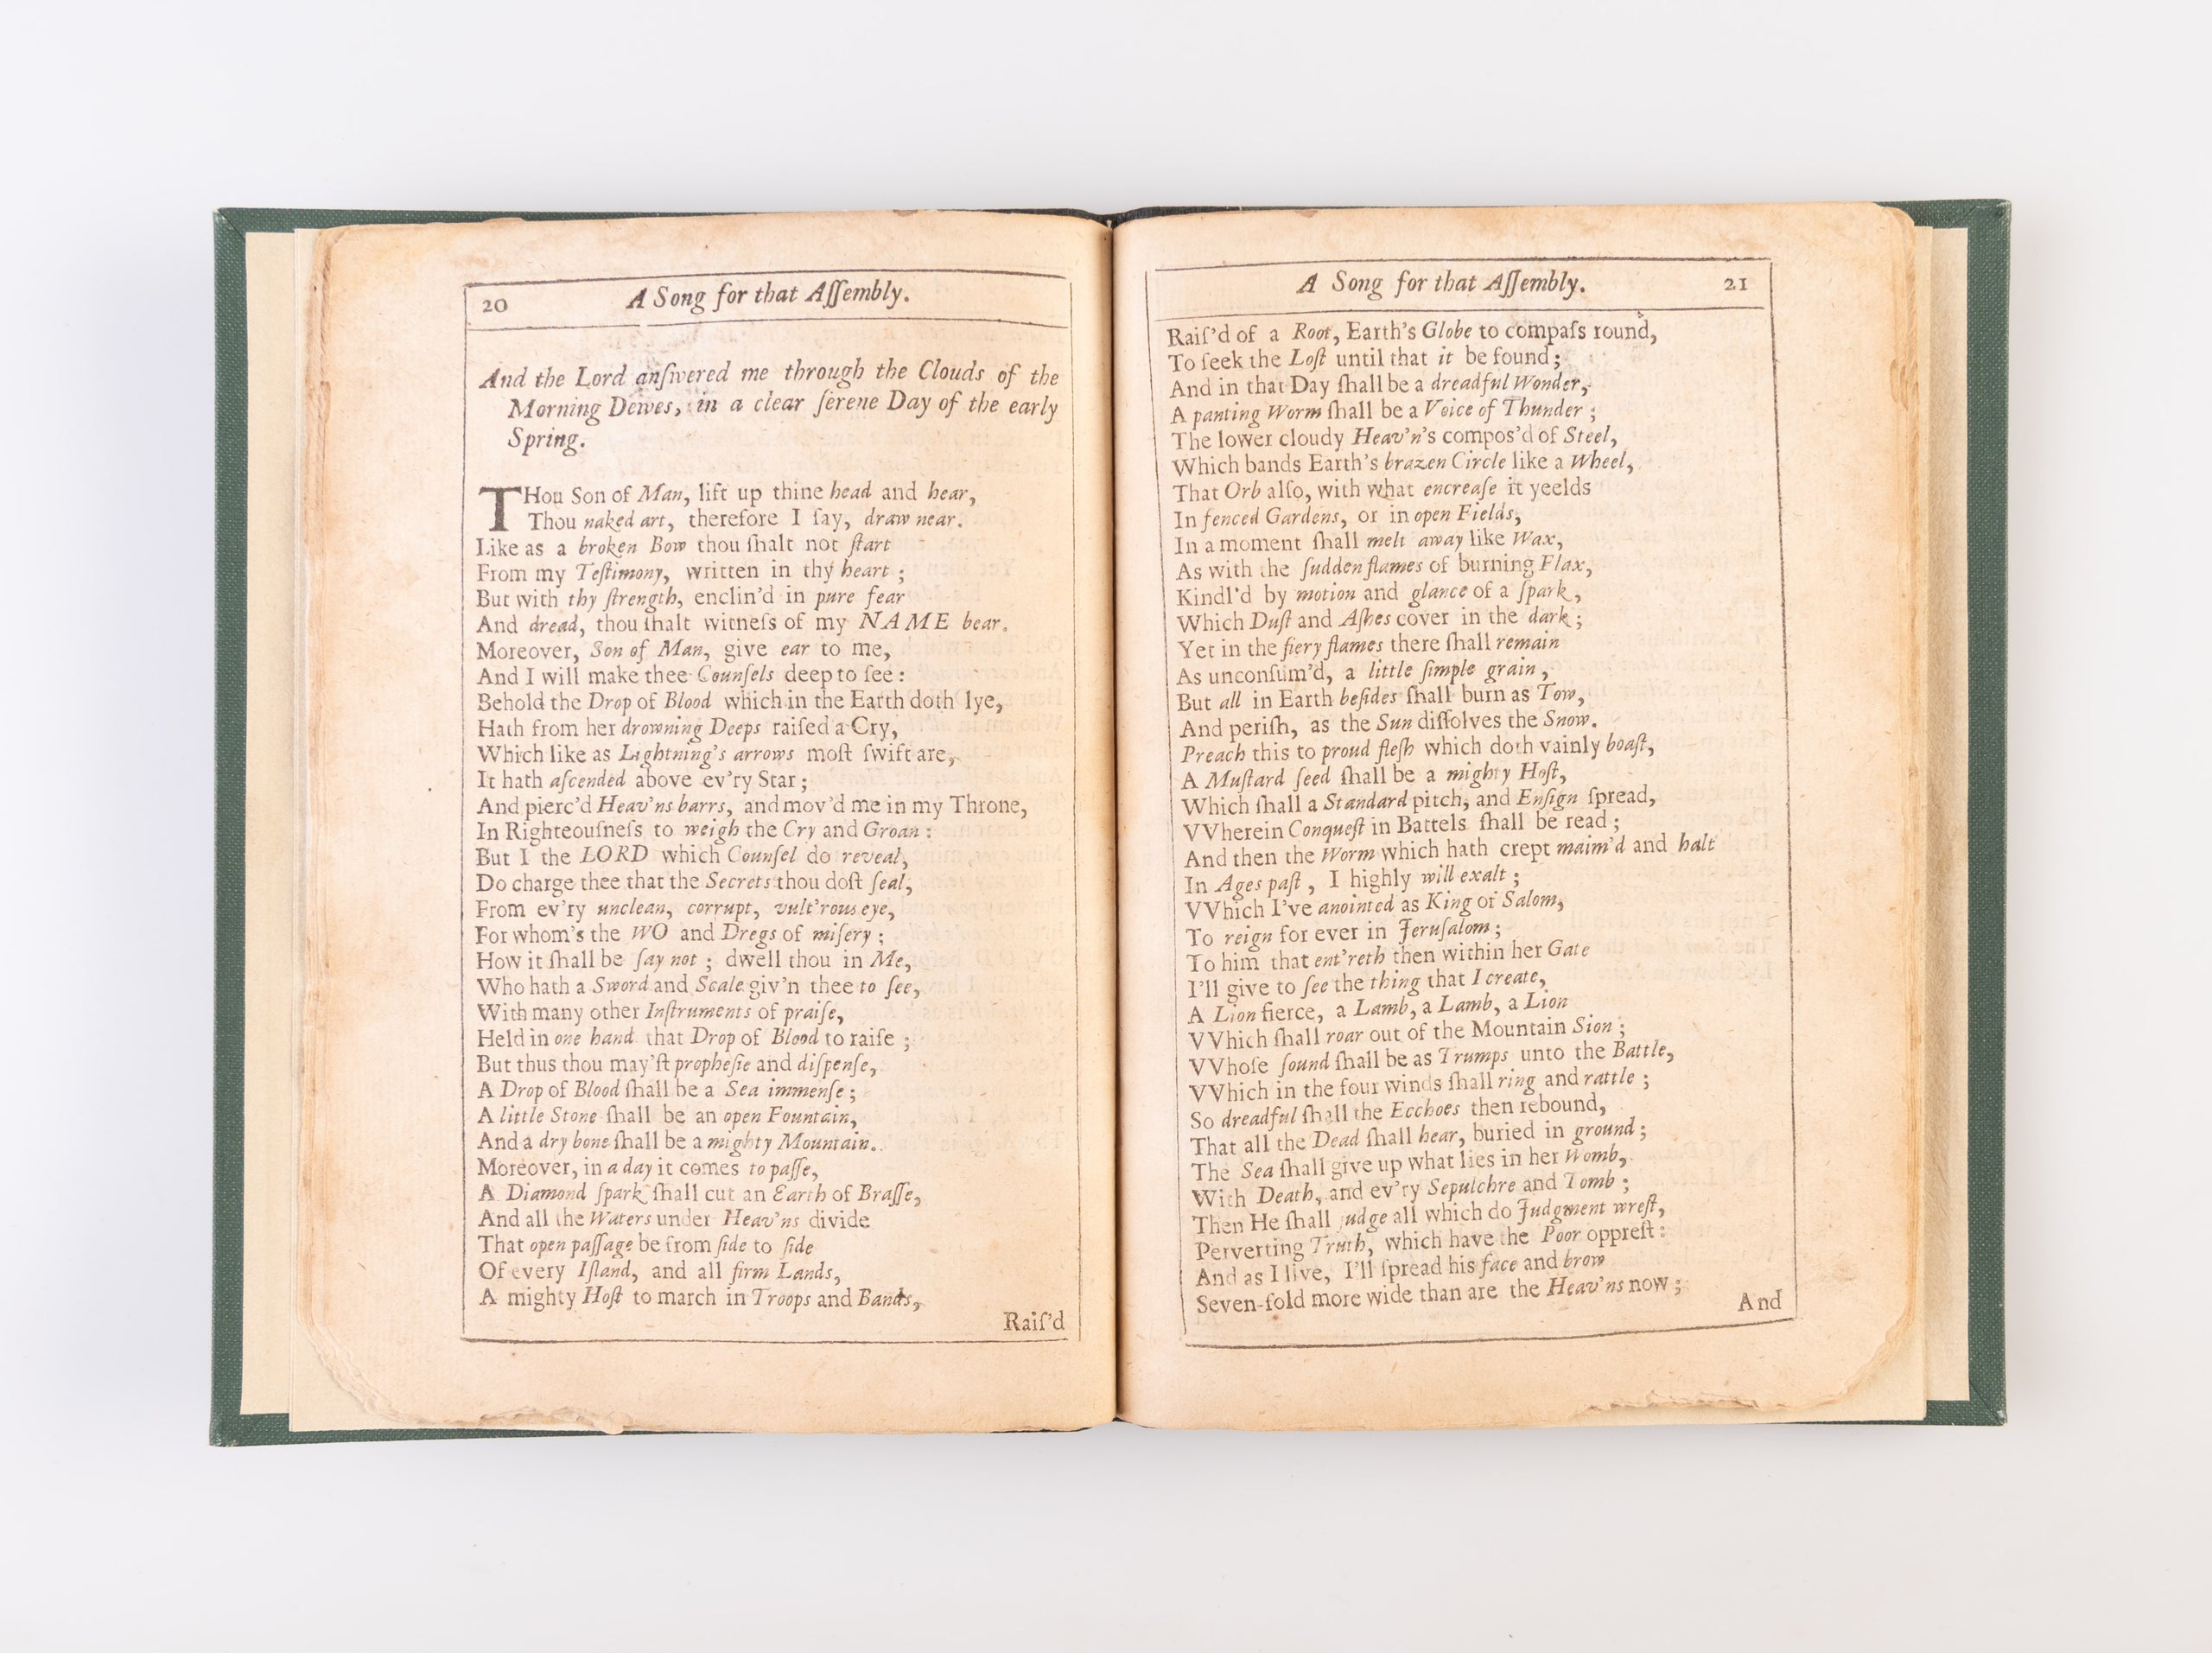 20 A Song for that Aſſembly.
And the Lord anſwered me through the Clouds of the
Morning Dewes, in a clear ſerene Day of the early
Spring.
THou Son of Man, lift up thine head and hear,
Thou naked art, therefore I ſay, draw near.
Like as a broken Bow thou ſhalt not ſtart
From my Teſtimony, written in thy heart ;
But with thy ſtrength, enclin'd in pure fear
And dread, thou ſhalt witneſs of my NAME bear.
Moreover, Son of Man, give ear to me,
And I will make thee Counſels deep to ſee :
Behold the Drop of Blood which in the Earth doth lye,
Hath from her drowning Deeps raiſed a Cry,
Which like as Lightning's arrows moſt ſwift are,
It hath aſcended above ev'ry Star ;
And pierc'd Heav'ns barrs, and mov'd me in my Throne,
In Righteouſneſs to weigh the Cry and Groan :
But I the LORD which Counſel do reveal,
Do charge thee that the Secrets thou doſt ſeal,
From ev'ry unclean, corrupt, vult'rous eye,
For whom's the WO and Dregs of miſery ;
How it ſhall be ſay not ; dwell thou in Me,
Who hath a Sword and Scale giv'n thee to ſee,
With many other Inſtruments of praiſe,
Held in one hand that Drop of Blood to raiſe ;
But thus thou may'ſt propheſie and diſpenſe,
A Drop of Blood ſhall be a Sea immenſe ;
A little Stone ſhall be an open Fountain,
And a dry bone ſhall be a mighty Mountain.
Moreover, in a day it comes to paſſe,
A Diamond ſpark ſhall cut an Earth of Braſſe,
And all the Waters under Heav'ns divide
That open paſſage be from ſide to ſide
Of every Iſland, and all firm Lands,
A mighty Hoſt to march in Troops and Bands,
Raiſ'd
A Song for that Aſſembly. 21
Raiſ'd of a Root, Earth's Globe to compaſs round,
To ſeek the Loſt until that it be found ;
And in that Day ſhall be a dreadful Wonder,
A panting Worm ſhall be a Voice of Thunder ;
The lower cloudy Heav'n's compos'd of Steel,
Which bands Earth's brazen Circle like a Wheel,
That Orb alſo, with what encreaſe it yeelds
In fenced Gardens, or in open Fields,
In a moment ſhall melt away like Wax,
As with the ſudden flames of burning Flax,
Kindl'd by motion and glance of a ſpark,
Which Duſt and Aſhes cover in the dark ;
Yet in the fiery flames there ſhall remain
As unconſum'd, a little ſimple grain,
But all in Earth beſides ſhall burn as Tow,
And periſh, as the Sun diſſolves the Snow.
Preach this to proud fleſh which doth vainly boaſt,
A Muſtard ſeed ſhall be a mighty Hoſt,
Which ſhall a Standard pitch, and Enſign ſpread,
VVherein Conqueſt in Battels ſhall be read ;
And then the Worm which hath crept maim'd and halt
In Ages paſt, I highly will exalt ;
VVhich I've anointed as King of Salom,
To reign for ever in Jeruſalom ;
To him that ent'reth then within her Gate
I'll give to ſee the thing that I create,
A Lion fierce, a Lamb, a Lamb, a Lion
VVhich ſhall roar out of the Mountain Sion ;
VVhoſe ſound ſhall be as Trumps unto the Battle,
VVhich in the four winds ſhall ring and rattle ;
So dreadful ſhall the Ecchoes then rebound,
That all the Dead ſhall hear, buried in ground ;
The Sea ſhall give up what lies in her Womb,
With Death, and ev'ry Sepulchre and Tomb ;
Then He ſhall judge all which do Judgment wreſt,
Perverting Truth, which have the Poor oppreſt :
And as I live, I'll ſpread his face and brow
Seven-fold more wide than are the Heav'ns now ;
And